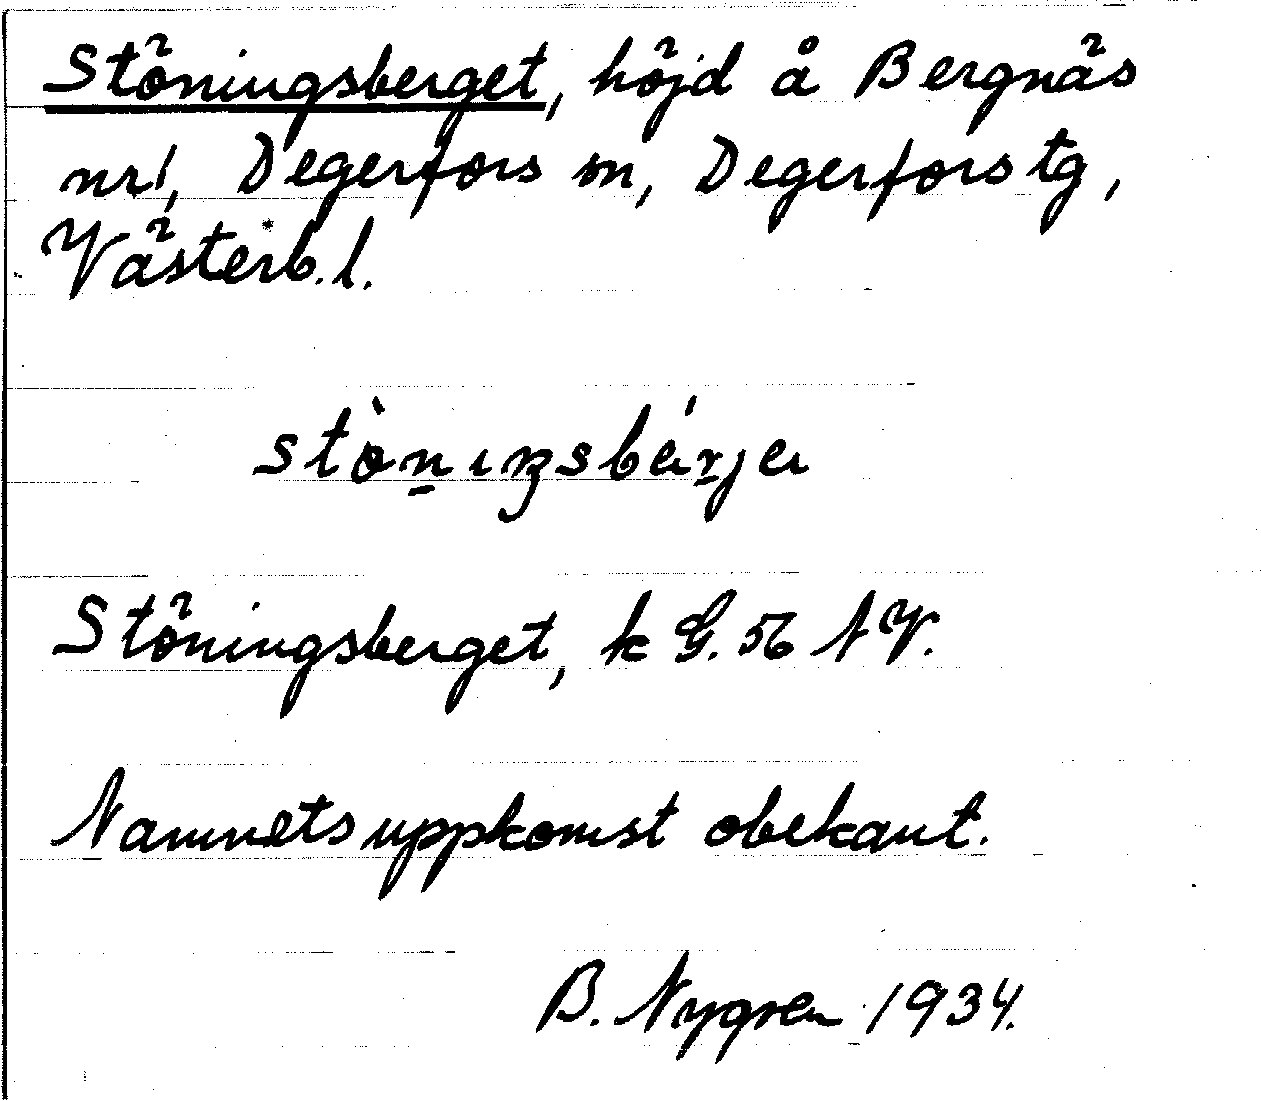 Stöningsberget, höjd å Bergnäs
nr1, Degerfors sn, Degerfors tg,
Västerb. l.
stò̱nıŋsbáɽ̱jeı
Stöningsberget, k G. 56 NV.
Namnets uppkomst obekant.
B. Nygren 1934.